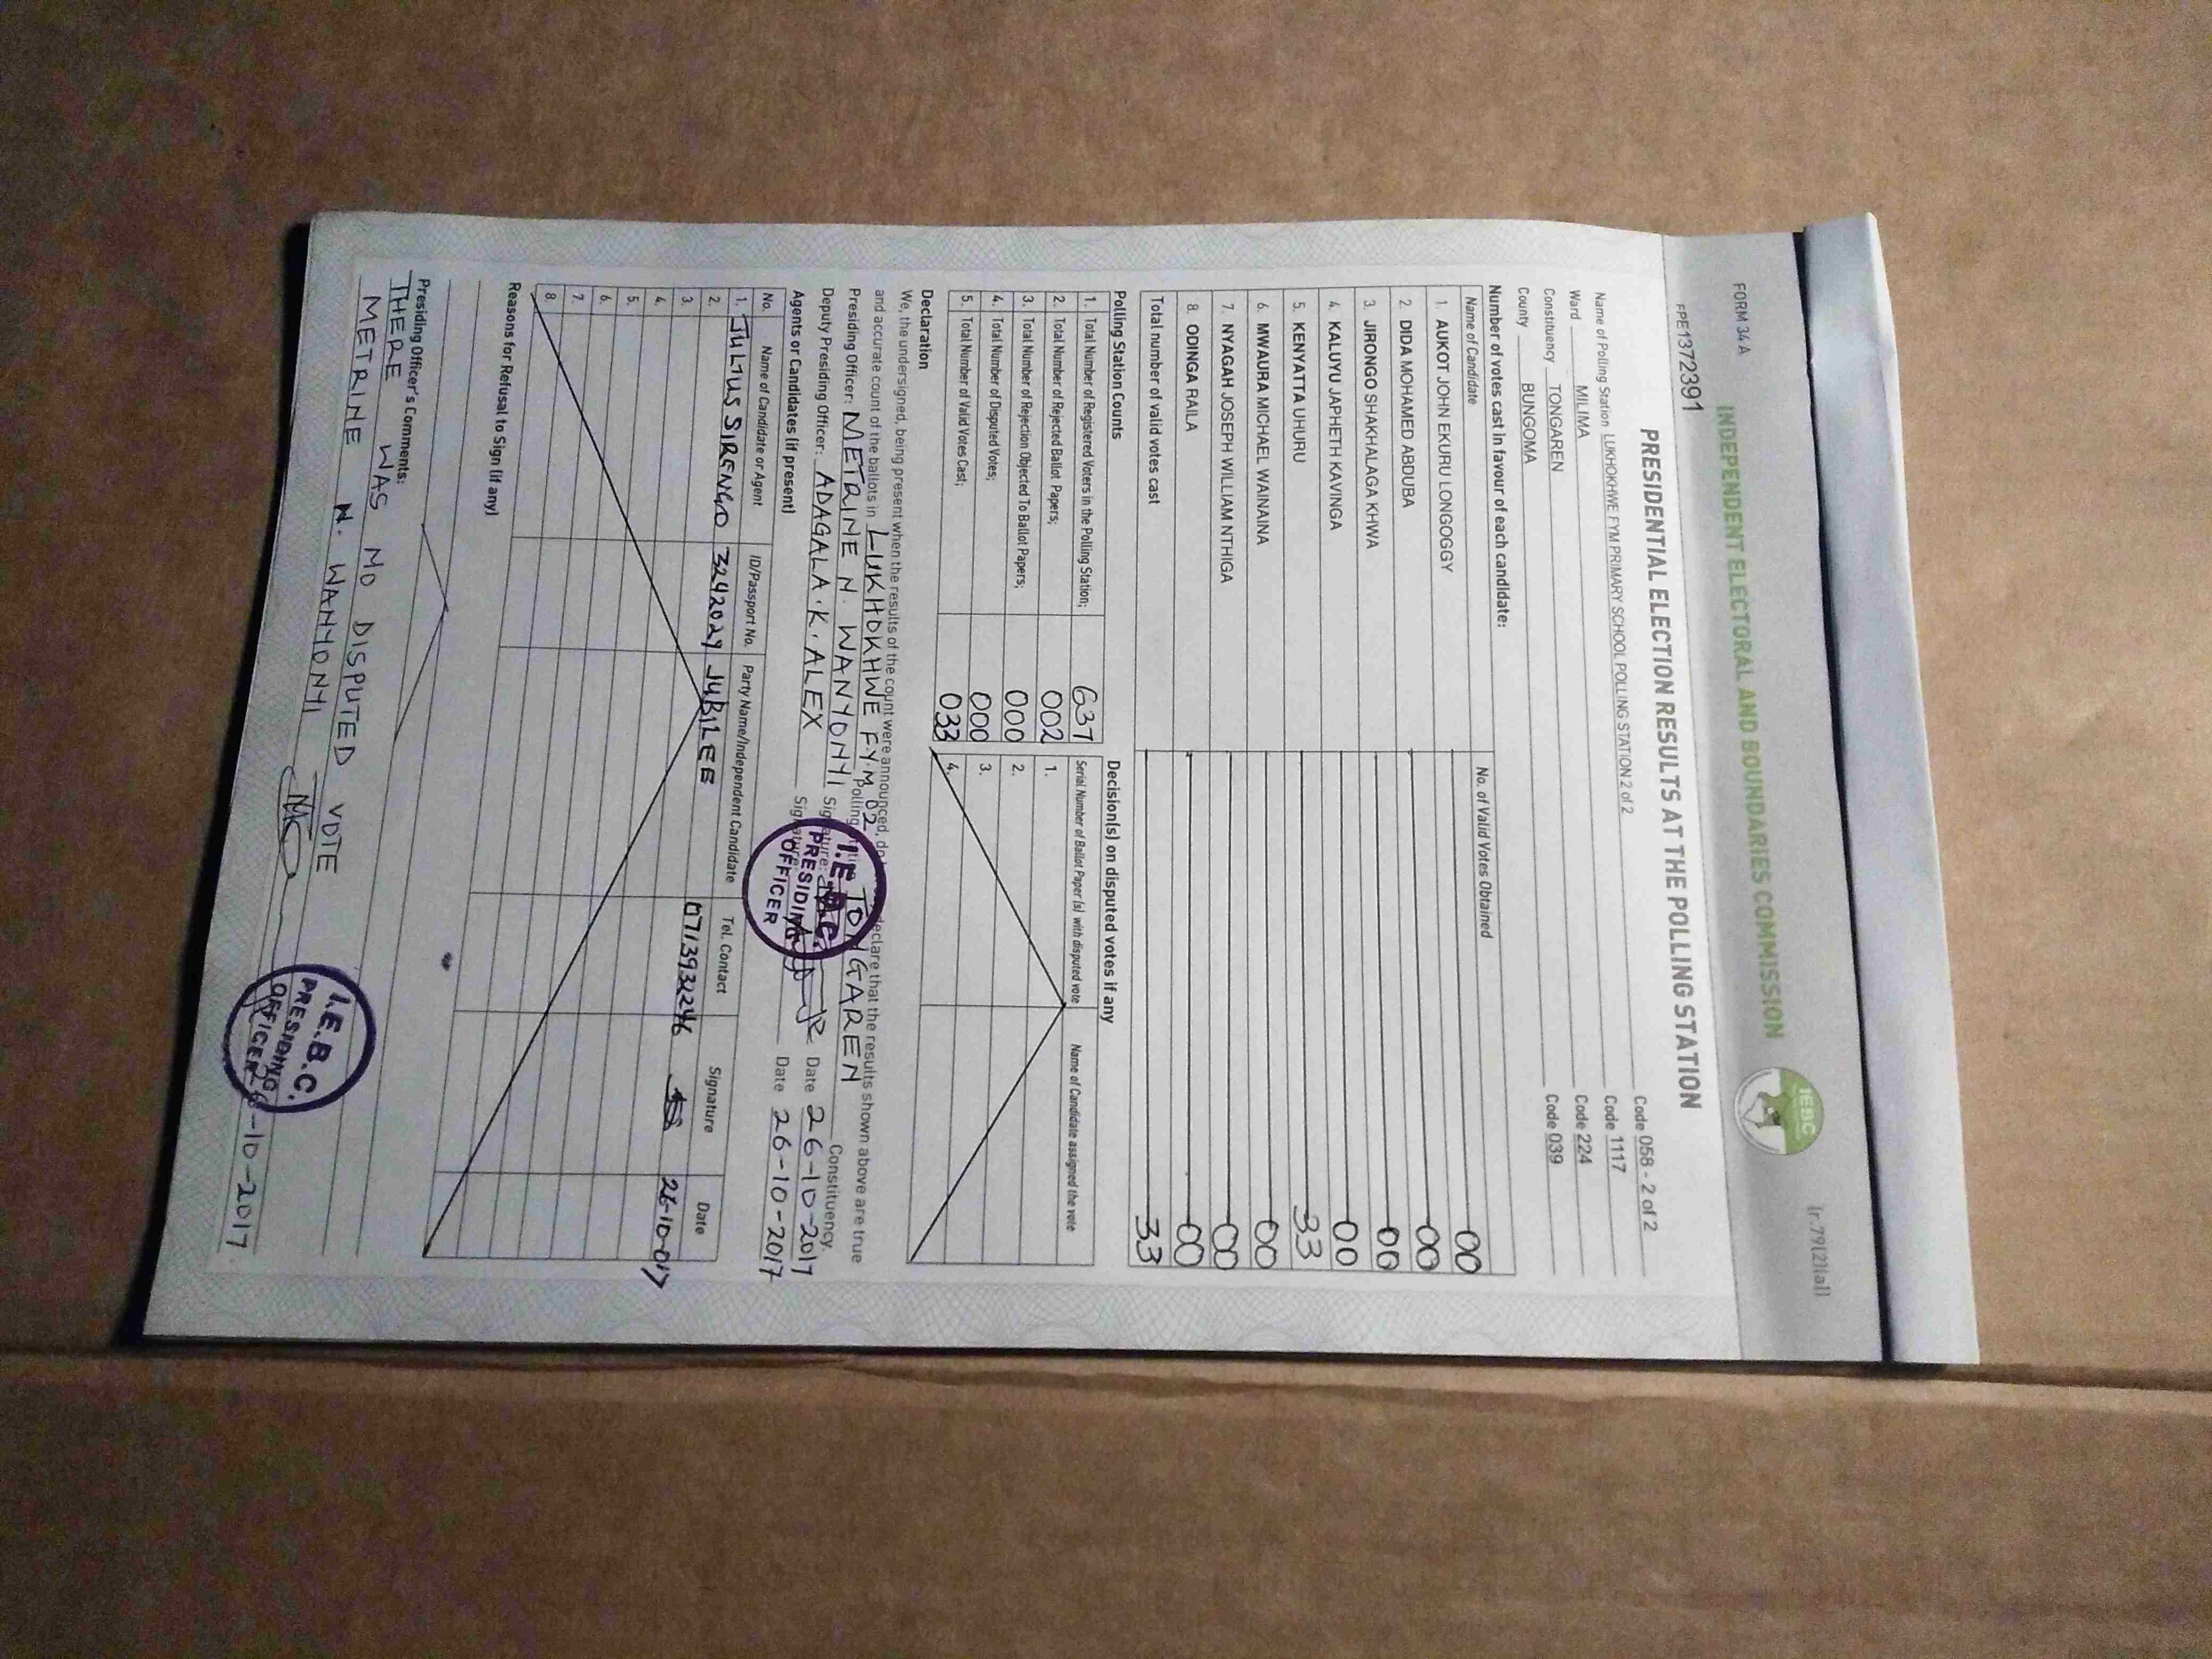 FORM 34 A
(r.79(2)(a))
INDEPENDENT ELECTORAL AND BOUNDARIES COMMISSION
IEBC
PE1372391
PRESIDENTIAL ELECTION RESULTS AT THE POLLING STATION
Name of Polling Station LUKHOKHWE FYM PRIMARY SCHOOL POLLING STATION 2 of 2 Code 058 - 2 of 2
Ward MILIMA Code 1117
Constituency TONGAREN Code 224
County BUNGOMA Code 039
Number of votes cast in favour of each candidate:
Name of Candidate No. of Valid Votes Obtained
1. AUKOT JOHN EKURU LONGOGGY 00
2. DIDA MOHAMED ABDUBA 00
3. JIRONGO SHAKHALAGA KHWA 00
4. KALUYU JAPHETH KAVINGA 00
5. KENYATTA UHURU 33
6. MWAURA MICHAEL WAINAINA 00
7. NYAGAH JOSEPH WILLIAM NTHIGA 00
8. ODINGA RAILA 00
Total number of valid votes cast 33
Polling Station Counts
1. Total Number of Registered Voters in the Polling Station; 637
2. Total Number of Rejected Ballot Papers; 002
3. Total Number of Rejection Objected To Ballot Papers; 000
4. Total Number of Disputed Votes; 000
5. Total Number of Valid Votes Cast; 033
Decision(s) on disputed votes if any
Serial Number of Ballot Paper (s) with disputed vote Name of Candidate assigned the vote
1.
2.
3.
4.
Declaration
We, the undersigned, being present when the results of the count were announced, do declare that the results shown above are true
and accurate count of the ballots in LUKHOKHWE F.Y.M 02 Polling TONGAREN Constituency.
Presiding Officer: METRINE N. WANYONYI Signature: Date 26-10-2017
Deputy Presiding Officer: ADAGALA . K . ALEX Signature: Date 26-10-2017
I.E.B.C.
PRESIDING
OFFICER
Agents or Candidates (if present)
No. Name of Candidate or Agent ID/Passport No. Party Name/Independent Candidate Tel. Contact Signature Date
1. JULIUS SIRENGO 3242029 JUBILEE 0713932246 26-10-017
2.
3.
4.
5.
6.
7.
8.
Reasons for Refusal to Sign (if any)
Presiding Officer's Comments:
THERE WAS NO DISPUTED VOTE
METRINE N. WANYONYI
-10-2017
I.E.B.C.
PRESIDING
OFFICER